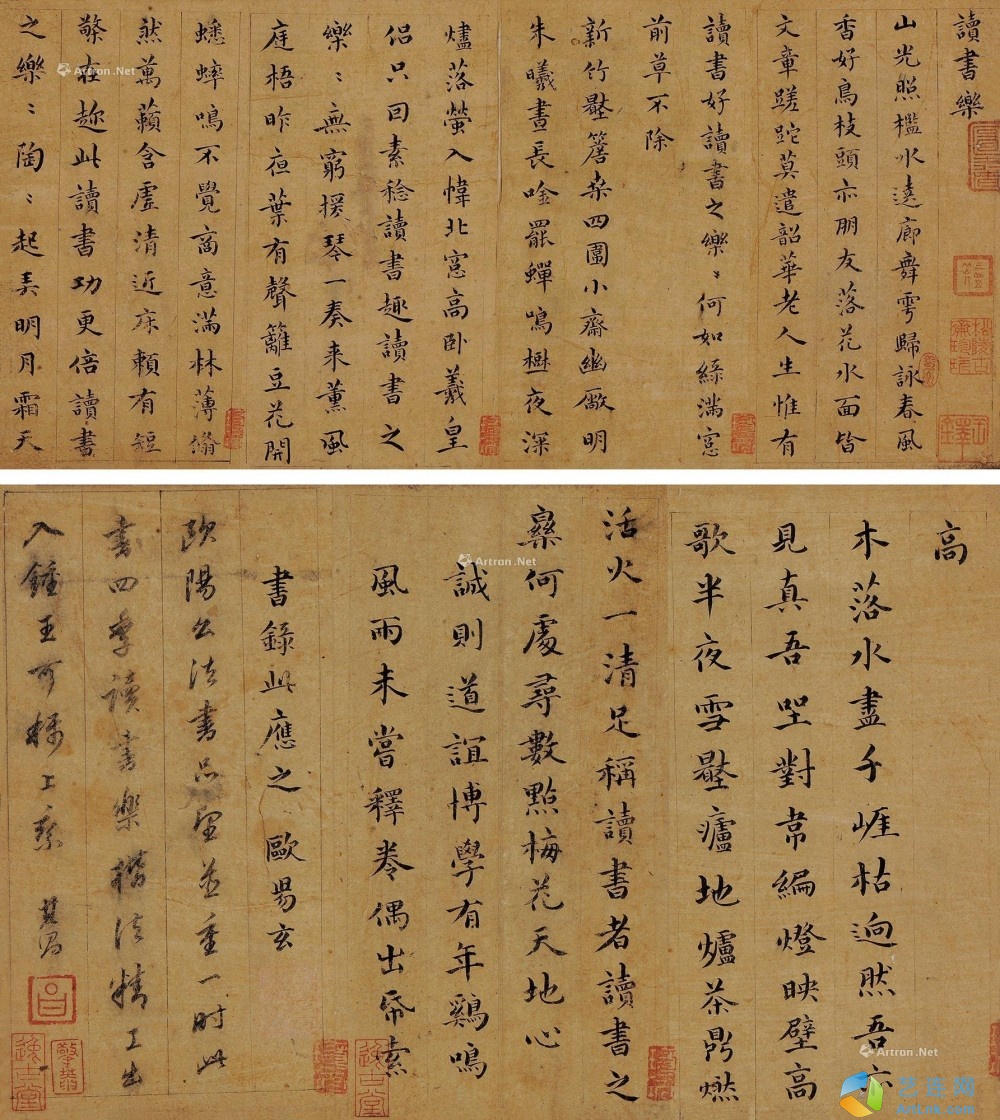 讀書樂
山光照檻水遶廊舞雩歸詠春風
香好鳥枝頭亦朋友落花水面皆
文章蹉跎莫遣韶華老人生惟有
讀書好讀書之樂〻何如綠滿窓
前草不除
新竹壓簷桒四圍小齋幽敞明
朱曦晝長唫罷蟬鳴樹夜深
燼落螢入幃北窓高卧羲皇
侣只因素稔讀書趣讀書之
樂〻無窮援琴一奏来薰風
庭梧昨夜葉有聲籬豆花開
蟋蟀鳴不覺商意滿林薄翛
然萬籟含虛清近床賴有短
檠在趂此讀書功更倍讀書
之樂〻陶〻起弄明月霜天
高
木落水盡千崕枯逈然吾亦
見真吾坐對韋編燈映壁高
歌半夜雪壓廬地爐茶鼎燃
活火一清足稱讀書者讀書之
樂何處尋數點梅花天地心
誠則道誼博學有年鷄鳴
風雨未嘗釋卷偶出帋索
書錄此應之歐陽玄
欧陽公法書品望並重一時此
書四季讀書樂楷法精工出
入鍾王可稱上乘
Artron.Net
Artron.Net
Artron.Net
Artron.Net